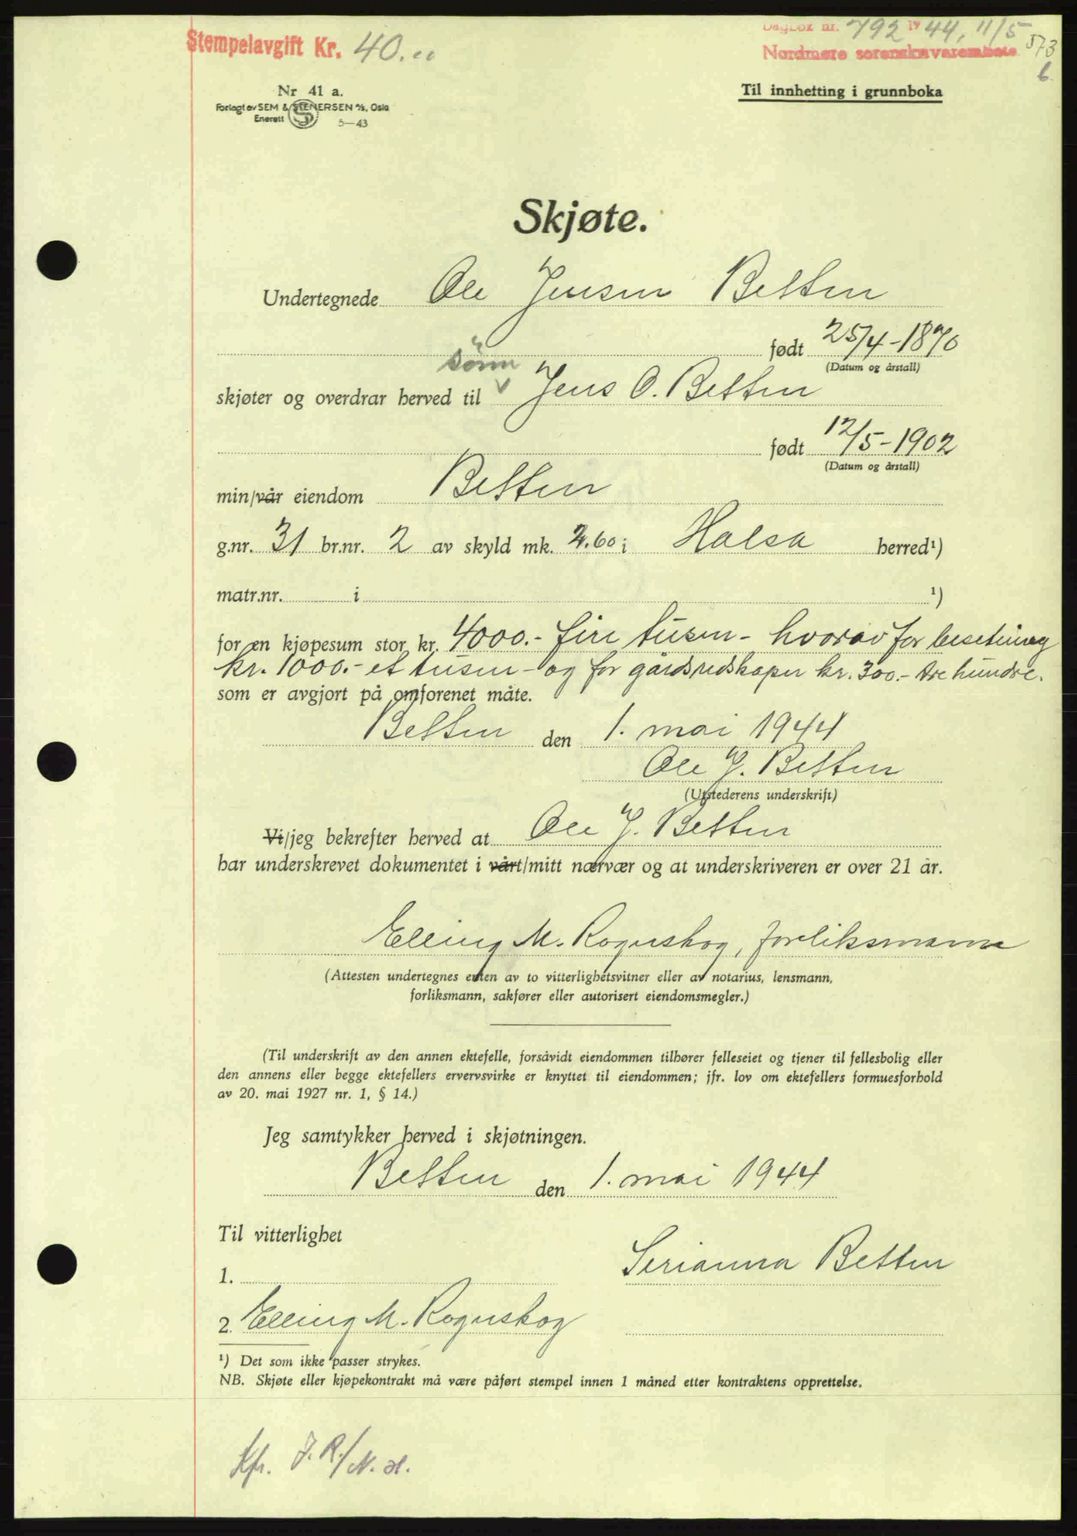 Stempelavgift Kr. 40.
Dagbok nr. 792 1944, 11/5
Nordmøre sorenskriverembete
573
b.
Nr 41 a.
Forlagt av SEM & STENERSEN A/S, Oslo
Enerett 5—43
Til innhefting i grunnboka
Skjøte.
Undertegnede Ole Jensen Betten
født 25/4-1870
(Datum og årstall)
sönn
skjøter og overdrar herved til Jens O. Betten
født 12/5-1902
(Datum og årstall)
min/vår eiendom Betten
g.nr. 31 br.nr. 2 av skyld mk. 2.60 i Halsa herred¹)
matr.nr. i ¹)
for en kjøpesum stor kr. 4000.- fire tusen - hvorav for besetning
kr. 1000.- et tusen - og for gårdsredskaper kr. 300.- tre hundre.
som er avgjort på omforenet måte.
Betten den 1. mai 1944
Ole J. Betten
(Utstederens underskrift)
Vi/jeg bekrefter herved at Ole J. Betten
har underskrevet dokumentet i vårt/mitt nærvær og at underskriveren er over 21 år.
Elling M. Rognskog, forliksmann
(Attesten undertegnes enten av to vitterlighetsvitner eller av notarius, lensmann,
forliksmann, sakfører eller autorisert eiendomsmegler.)
(Til underskrift av den annen ektefelle, forsåvidt eiendommen tilhører felleseiet og tjener til fellesbolig eller
den annens eller begge ektefellers ervervsvirke er knyttet til eiendommen; jfr. lov om ektefellers formuesforhold
av 20. mai 1927 nr. 1, § 14.)
Jeg samtykker herved i skjøtningen.
Betten den 1. mai 1944
Til vitterlighet
Serianna Betten
1.
2. Elling M. Rognskog
¹) Det som ikke passer strykes.
NB. Skjøte eller kjøpekontrakt må være påført stempel innen 1 måned etter kontraktens opprettelse.
Kfr. J.R./N.H.